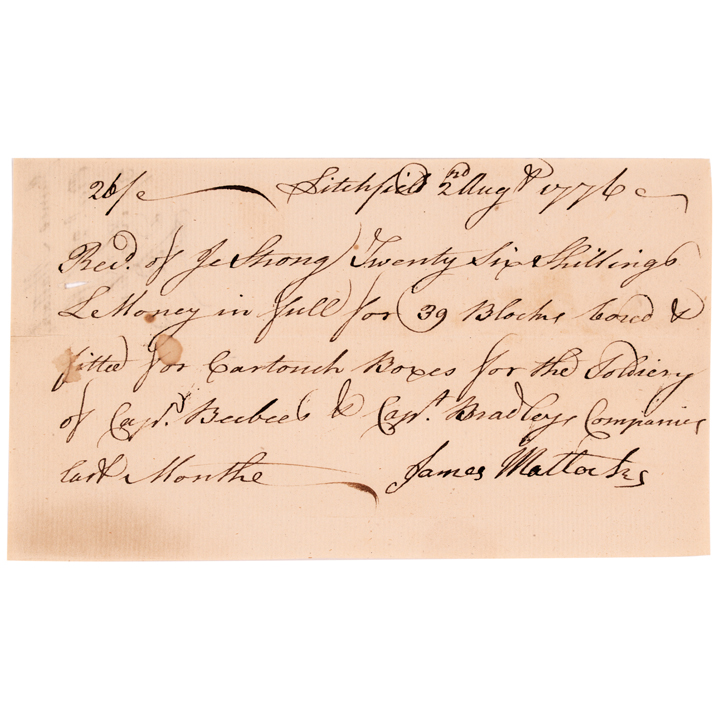 26/ Litchfield 2nd Augt 1776
Recd. of Jed Strong Twenty Six Shillings
L Money in full for 39 Blocks bored &
fitted for Cartouch Boxes for the Soldiery
of Capt. Beebees & Capt. Bradleys Companies
last Monthe
James Mattocks